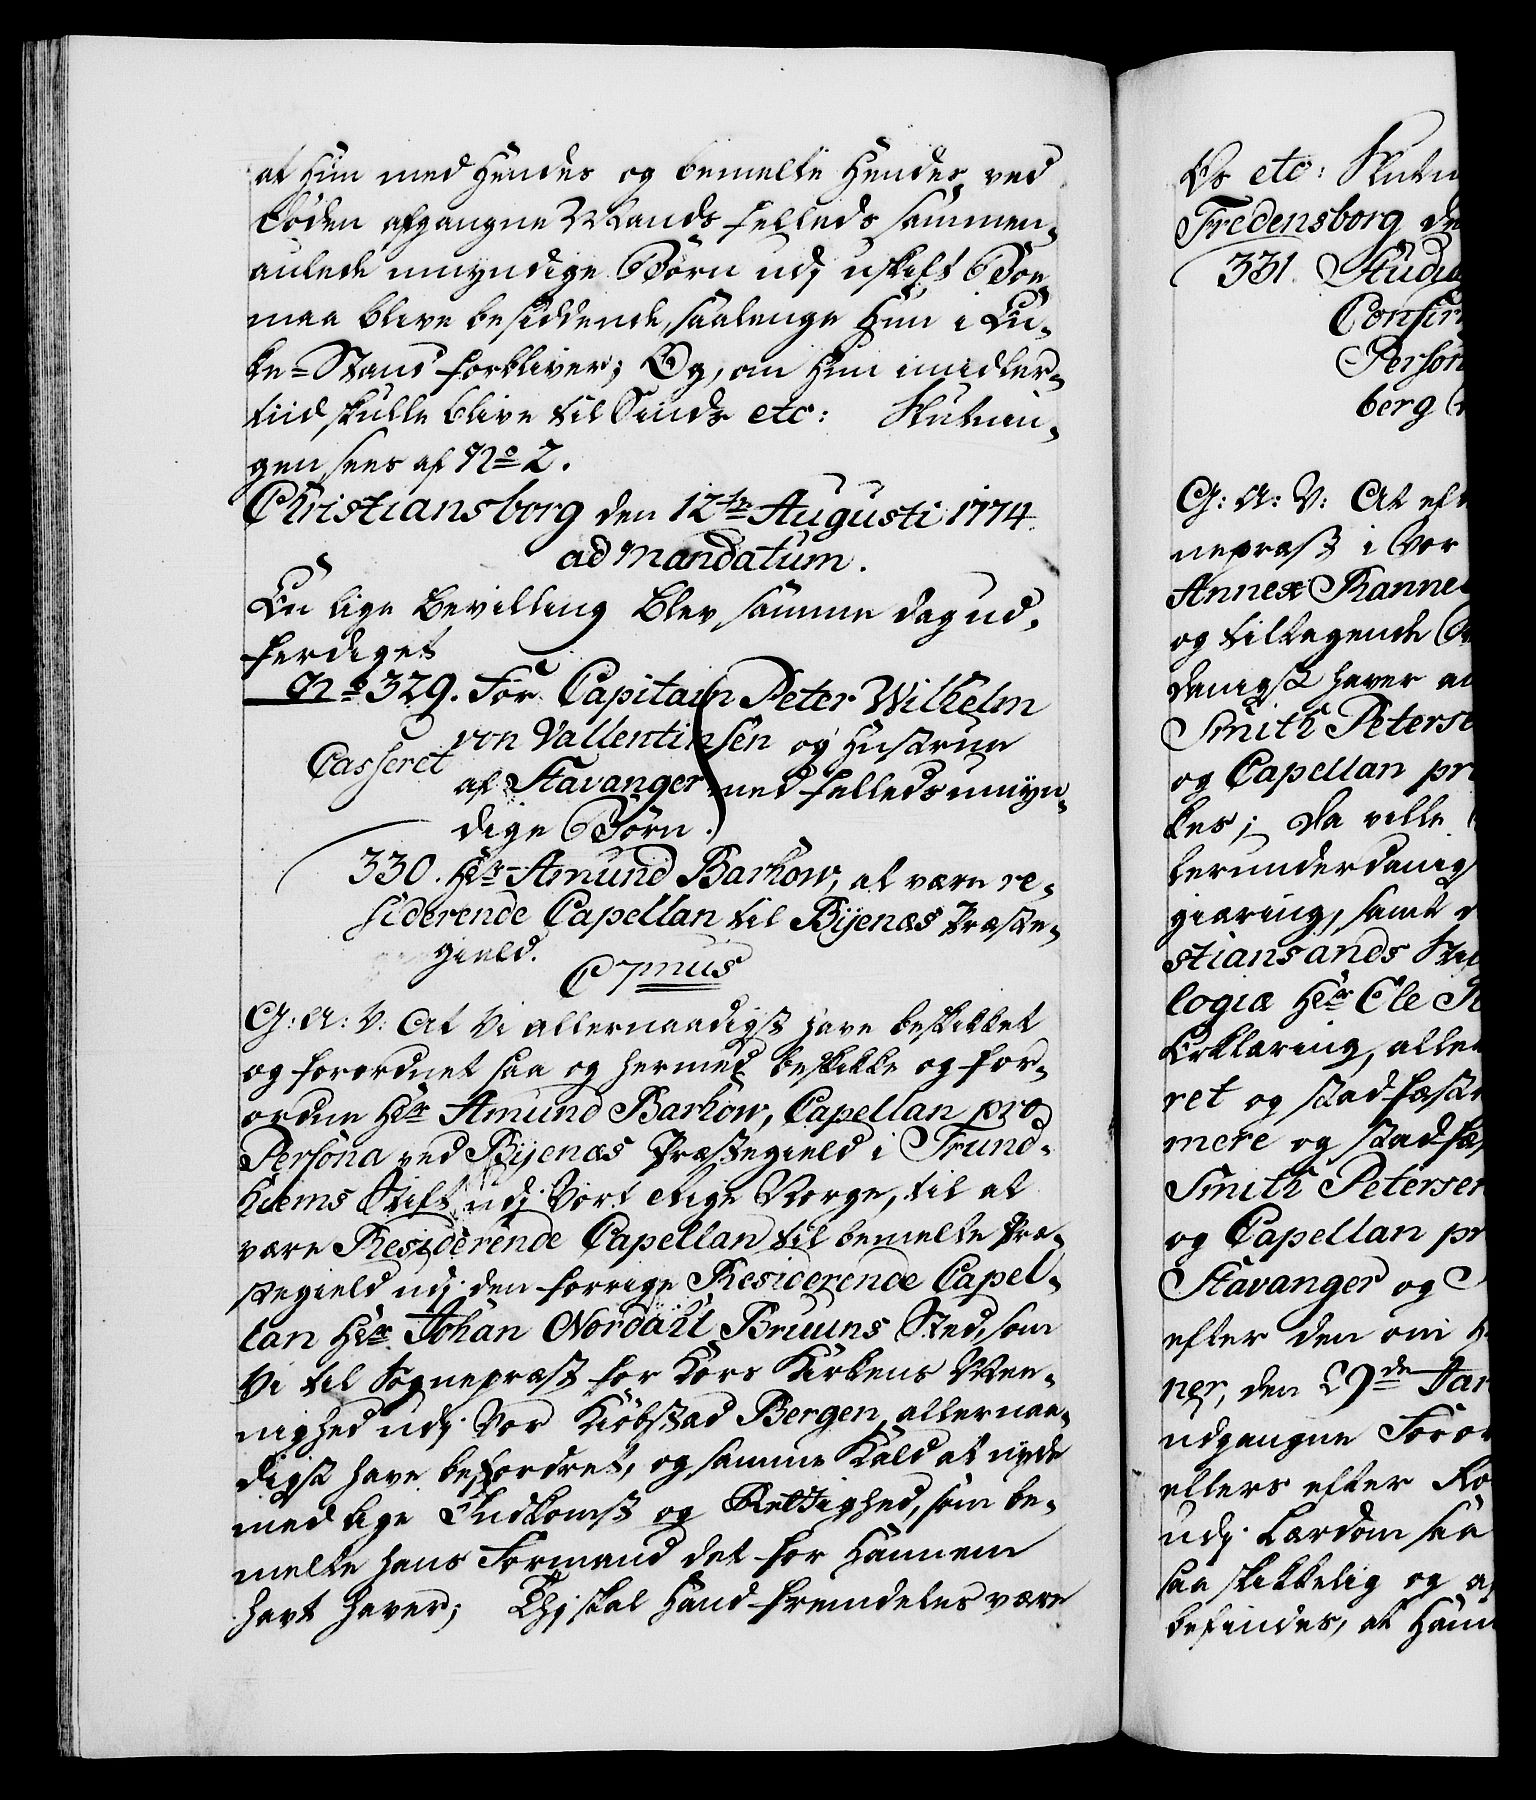 at Hun med Hendes og bemelte Hendes ved
Døden afgangne Mands fælleds sammen,
aulede umyndige Børn udj uskift Boe
maa blive besiddende, saalenge Hun i En,
ke=Stand forbliver; Og, om Hun imidler,
tiid skulle blive til Sinds etc: Slutnin,
gen sees af No 2.
Christiansborg den 12te Augusti 1774.
ad Mandatum.
En lige Bevilling blev samme dag ud,
ferdiget
No 329. For Capitain Peter Wilhelm
von Vallentinsen og Hustrue
Casseret
af Stavanger med fælleds umyn,
dige Børn.
330. Hr Amund Barhow, at være re,
siderende Capellan til Bÿenæs Præste,
gield.
C 7mus
G: A: V: At Vi allernaadigst have beskikket
og forordnet saa og hermed beskikke og for,
ordne Hr Amund Barhow, Capellan pro
Persona ved Bÿenæs Præstegield i Trund,
hiems Stift udj Vort Rige Norge, til at
være Residerende Capellan til bemelte Præ,
stegield udj den forrige Residerende Capel,
lan Hr Johan Nordahl Bruuns Sted, som
Vi til Sognepræst for Kors Kirkens Mee,
nighed udj Vor Kiøbstad Bergen allernaa,
digst have befordret, og samme Kald at nyde
med lige Indkomst og Rettighed, som be,
melte hans Formand det for Hannem
havt haver; Thj skal Hand fremdeles være
Os etc: Slutn
Fredensborg de
331. Stud
Confir
Person
berg
G: A: V: At eft
nepræst i Vor
Annex Ranne
og tilliggende
danigst haver a
Smith Peterse
og Capellan pr
kes; Da ville
lerunderdanigs
giæring, samt
stiansands Sti
logiæ Hr Ole
Erklæring, alle
ret og stadfæst
mere og stadfæ
Smith Petersen
og Capellan pr
Stavanger og
efter den om
ner, den 29de Jan
udgangne Foror
ellers efter
udj Lærdom saa
saa skikkelig og a
befindes, at Han